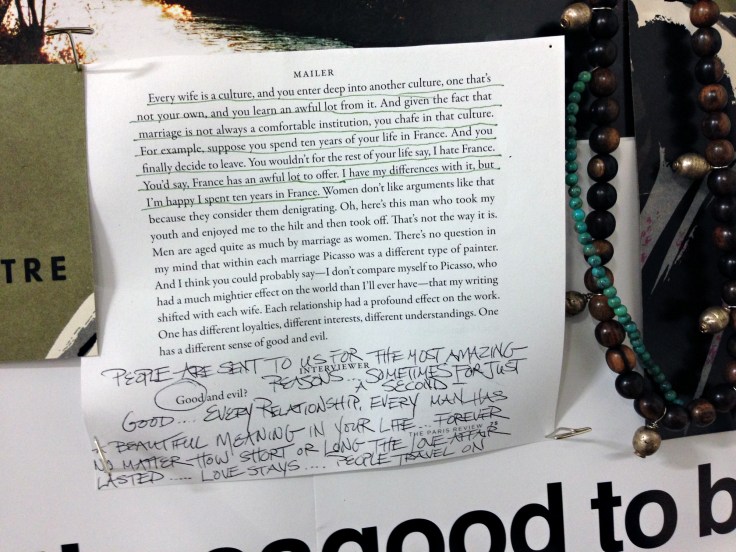 MAILER
Every wife is a culture, and you enter deep into another culture, one that's
not your own, and you learn an awful lot from it. And given the fact that
marriage is not always a comfortable institution, you chafe in that culture.
For example, suppose you spend ten years of your life in France. And you
finally decide to leave. You wouldn't for the rest of your life say, I hate France.
You'd say, France has an awful lot to offer. I have my differences with it, but
I'm happy I spent ten years in France. Women don't like arguments like that
because they consider them denigrating. Oh, here's this man who took my
youth and enjoyed me to the hilt and then took off. That's not the way it is.
Men are aged quite as much by marriage as women. There's no question in
my mind that within each marriage Picasso was a different type of painter.
And I think you could probably say—I don't compare myself to Picasso, who
had a much mightier effect on the world than I'll ever have—that my writing
shifted with each wife. Each relationship had a profound effect on the work.
One has different loyalties, different interests, different understandings. One
has a different sense of good and evil.
INTERVIEWER
Good and evil?
THE PARIS REVIEW
PEOPLE ARE SENT TO US FOR THE MOST AMAZING
REASONS.... SOMETIMES FOR JUST
A SECOND I
GOOD.... EVERY RELATIONSHIP, EVERY MAN HAS
A BEAUTIFUL MEANING IN YOUR LIFE... FOREVER
NO MATTER HOW SHORT OR LONG THE LOVE AFFAIR
LASTED..... LOVE STAYS.... PEOPLE TRAVEL ON
TRE
good to b